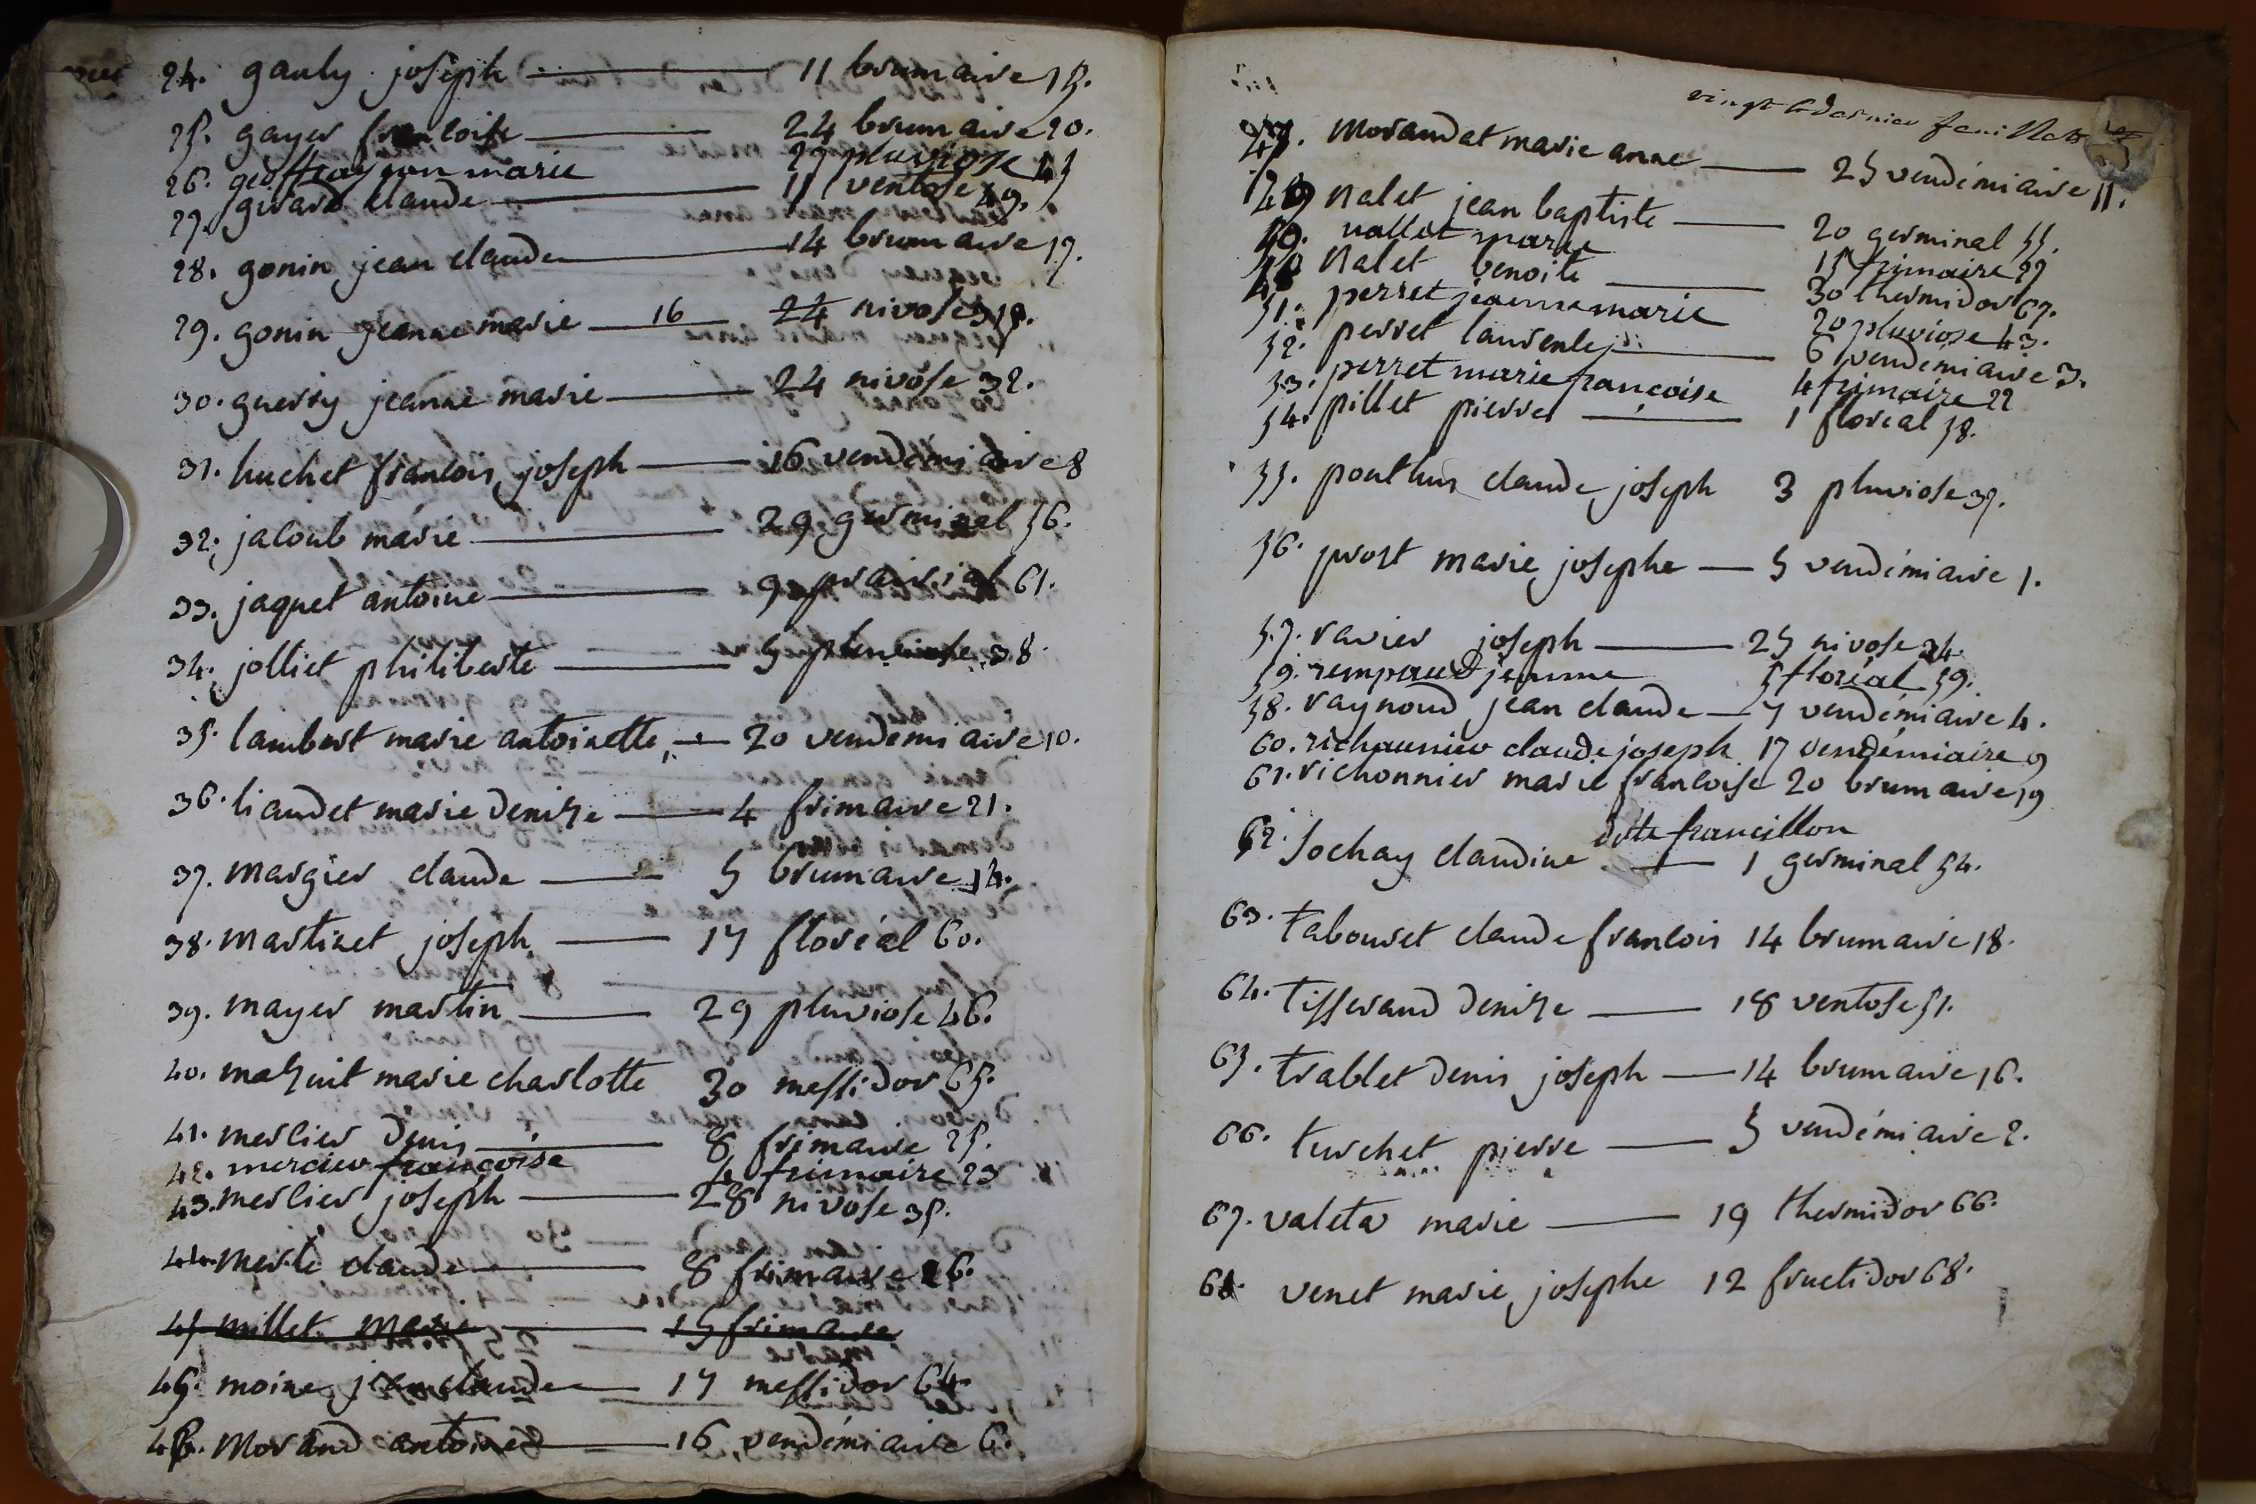 24. gauly joseph 11 brumaire 15.
25. gayer francoise 24 brumaire 20.
26. geoffray marie 27 pluviose 45
27. girard claude 11 ventose 49.
28. gonin jean claude 14 brumaire 17.
29. gonin jeanne marie 16 24 nivose 31.
30. guerry jeanne marie 24 nivôse 32.
31. huchet francois joseph 16 vendémiaire 8
32. jacoub marie 29 germinal 56.
33. jaquet antoine 9 prairial 61.
34. jolliet philiberte 5 pluviose 38.
35. lambert marie antoinette 20 vendemiaire 10.
36. liaudet marie denize 4 frimaire 21.
37. margier claude 5 brumaire 14.
38. martinet joseph 17 floréal 60.
39. mayer martin 29 pluviose 46.
40. mazuit marie charlotte 30 messidor 65.
41. mercier denis 8 frimaire 25.
42. mercier francoise 4 frimaire 23
43. mercier joseph 28 nivose 35.
44. merle claude 8 frimaire 26.
45 millet marie 15 frimaire
45. moine jean claude 17 messidor 64.
46. Morand antoine 16 vendémiaire 6.
vingt dernier feuillets
47. Morandat marie anne 25 vendémiaire 11.
49 Nalet jean baptiste 20 germinal 55.
50. nallet marie 15 frimaire 27
48 Nalet benoite 30 thermidor 67.
51. perret jeanne marie 20 pluviose 43.
52. perret laurent 6 vendemiaire 3.
53. perret marie francoise 4 frimaire 22
54. pillet pierre 1 floréal 58.
55. pouthus claude joseph 3 pluviose 37.
56. prost marie josephe 5 vendémiaire 1.
57. ravier joseph 25 nivose 34.
59. rempaud jeanne 5 floréal 59.
58. raynoud jean claude 7 vendémiaire 4.
60. richaunier claude joseph 17 vendémiaire 9
61. richonnier marie francoise 20 brumaire 19
dite francillon
62. Sochay claudine 1 germinal 54.
63. tabouret claude francois 14 brumaire 18.
64. tisserand denize 18 ventose 51.
65. trablet denis joseph 14 brumaire 16.
66. turchet pierre 5 vendémiaire 2.
67. valeta marie 19 thermidor 66.
68. venet marie josephe 12 fructidor 68.